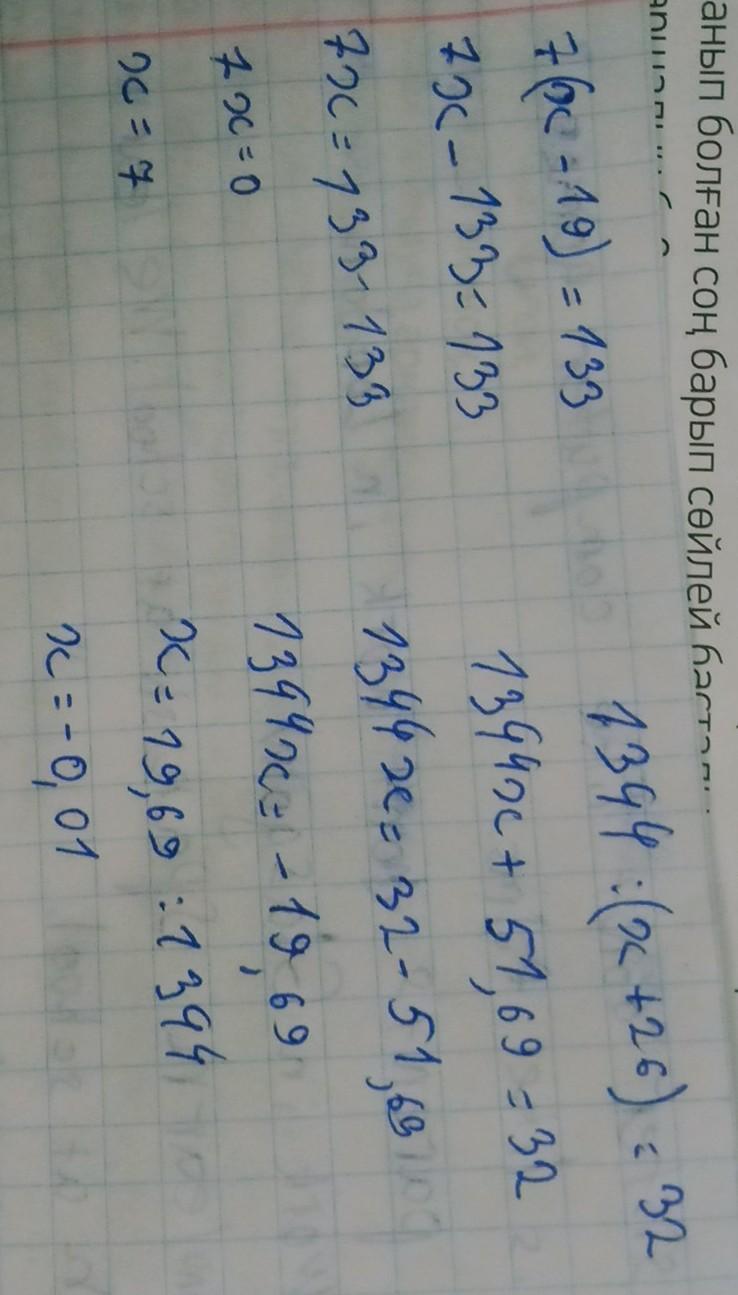 анып болған соң барып сөйлей
7(x - 19) = 133
7x - 133 = 133
7x = 133 - 133
7x = 0
x = 7
1344 : (x + 26) = 32
1344x + 51,69 = 32
1344x = 32 - 51,69
1344x = - 19,69
x = 19,69 : 1344
x = - 0,01